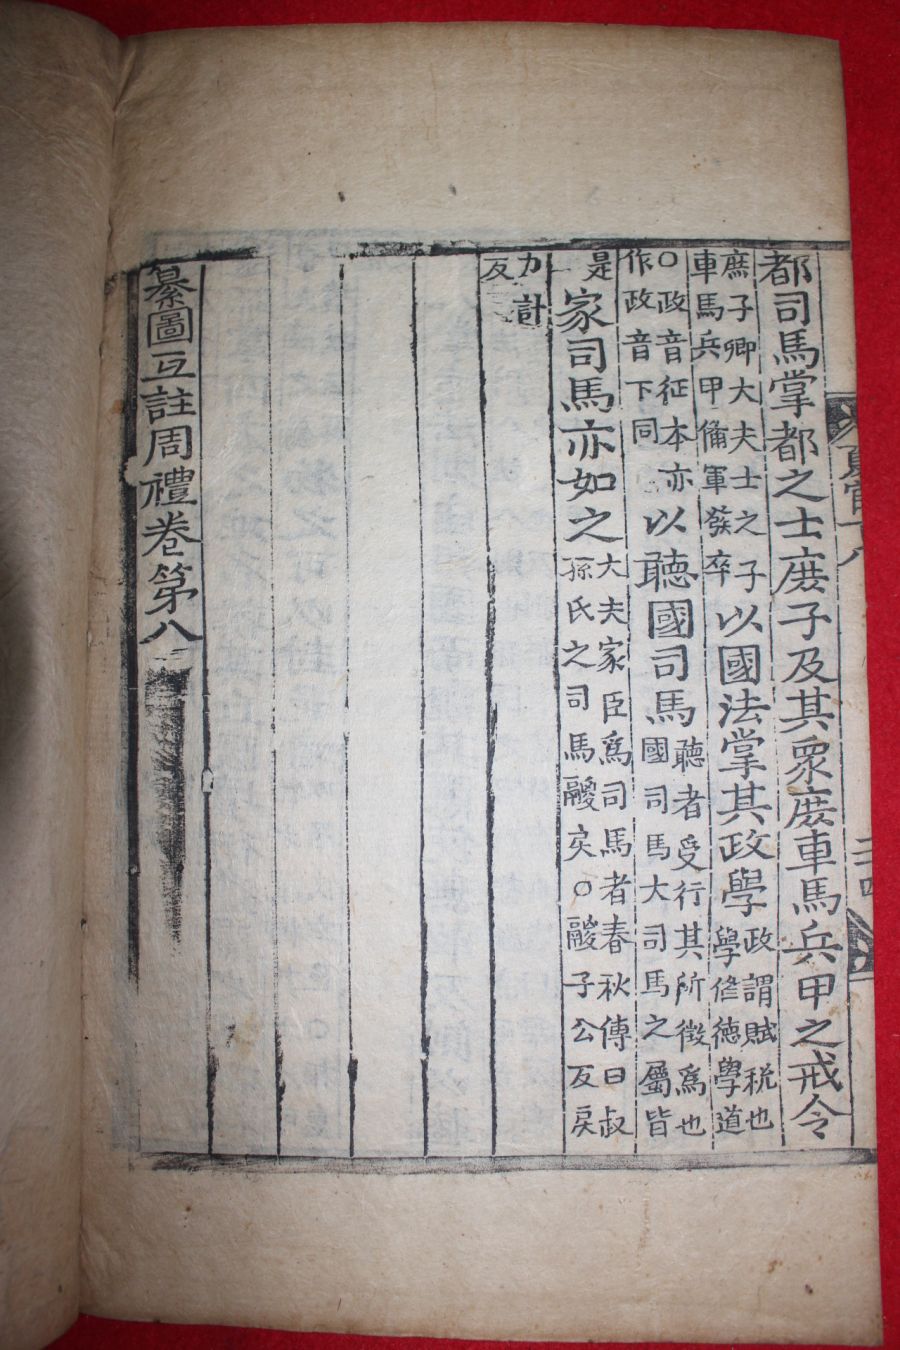 都司馬掌都之士庻子及其衆庻車馬兵甲之戒令
庻子卿大夫士之子車馬兵甲備軍發卒以國法掌其政學政謂賦税也學修德學道
○政音征本亦作政音下同以聽國司馬聽者受行其所徵爲也國司馬大司馬之屬皆
是家司馬亦如之大夫家臣爲司馬者春秋傳曰叔孫氏之司馬鬷戾○鬷子公反戾
力計反
纂圖互註周禮卷第八
夏官八
二十四